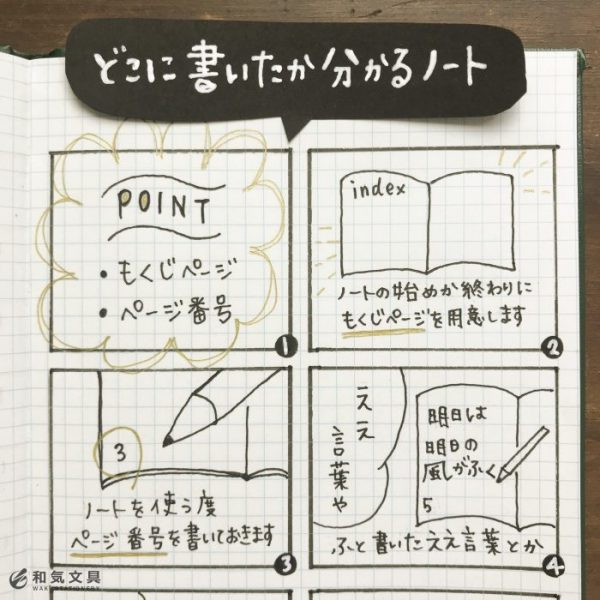 どこに書いたか分かるノート
POINT
• もくじページ
• ページ番号
1
index
ノートの始めか終わりに
もくじページを用意します
2
3
ノートを使う度
ページ番号を書いておきます
3
ええ
言葉や
明日は
明日の
風がふく
5
ふと書いたええ言葉とか
4
和気文具
WAKI STATIONERY